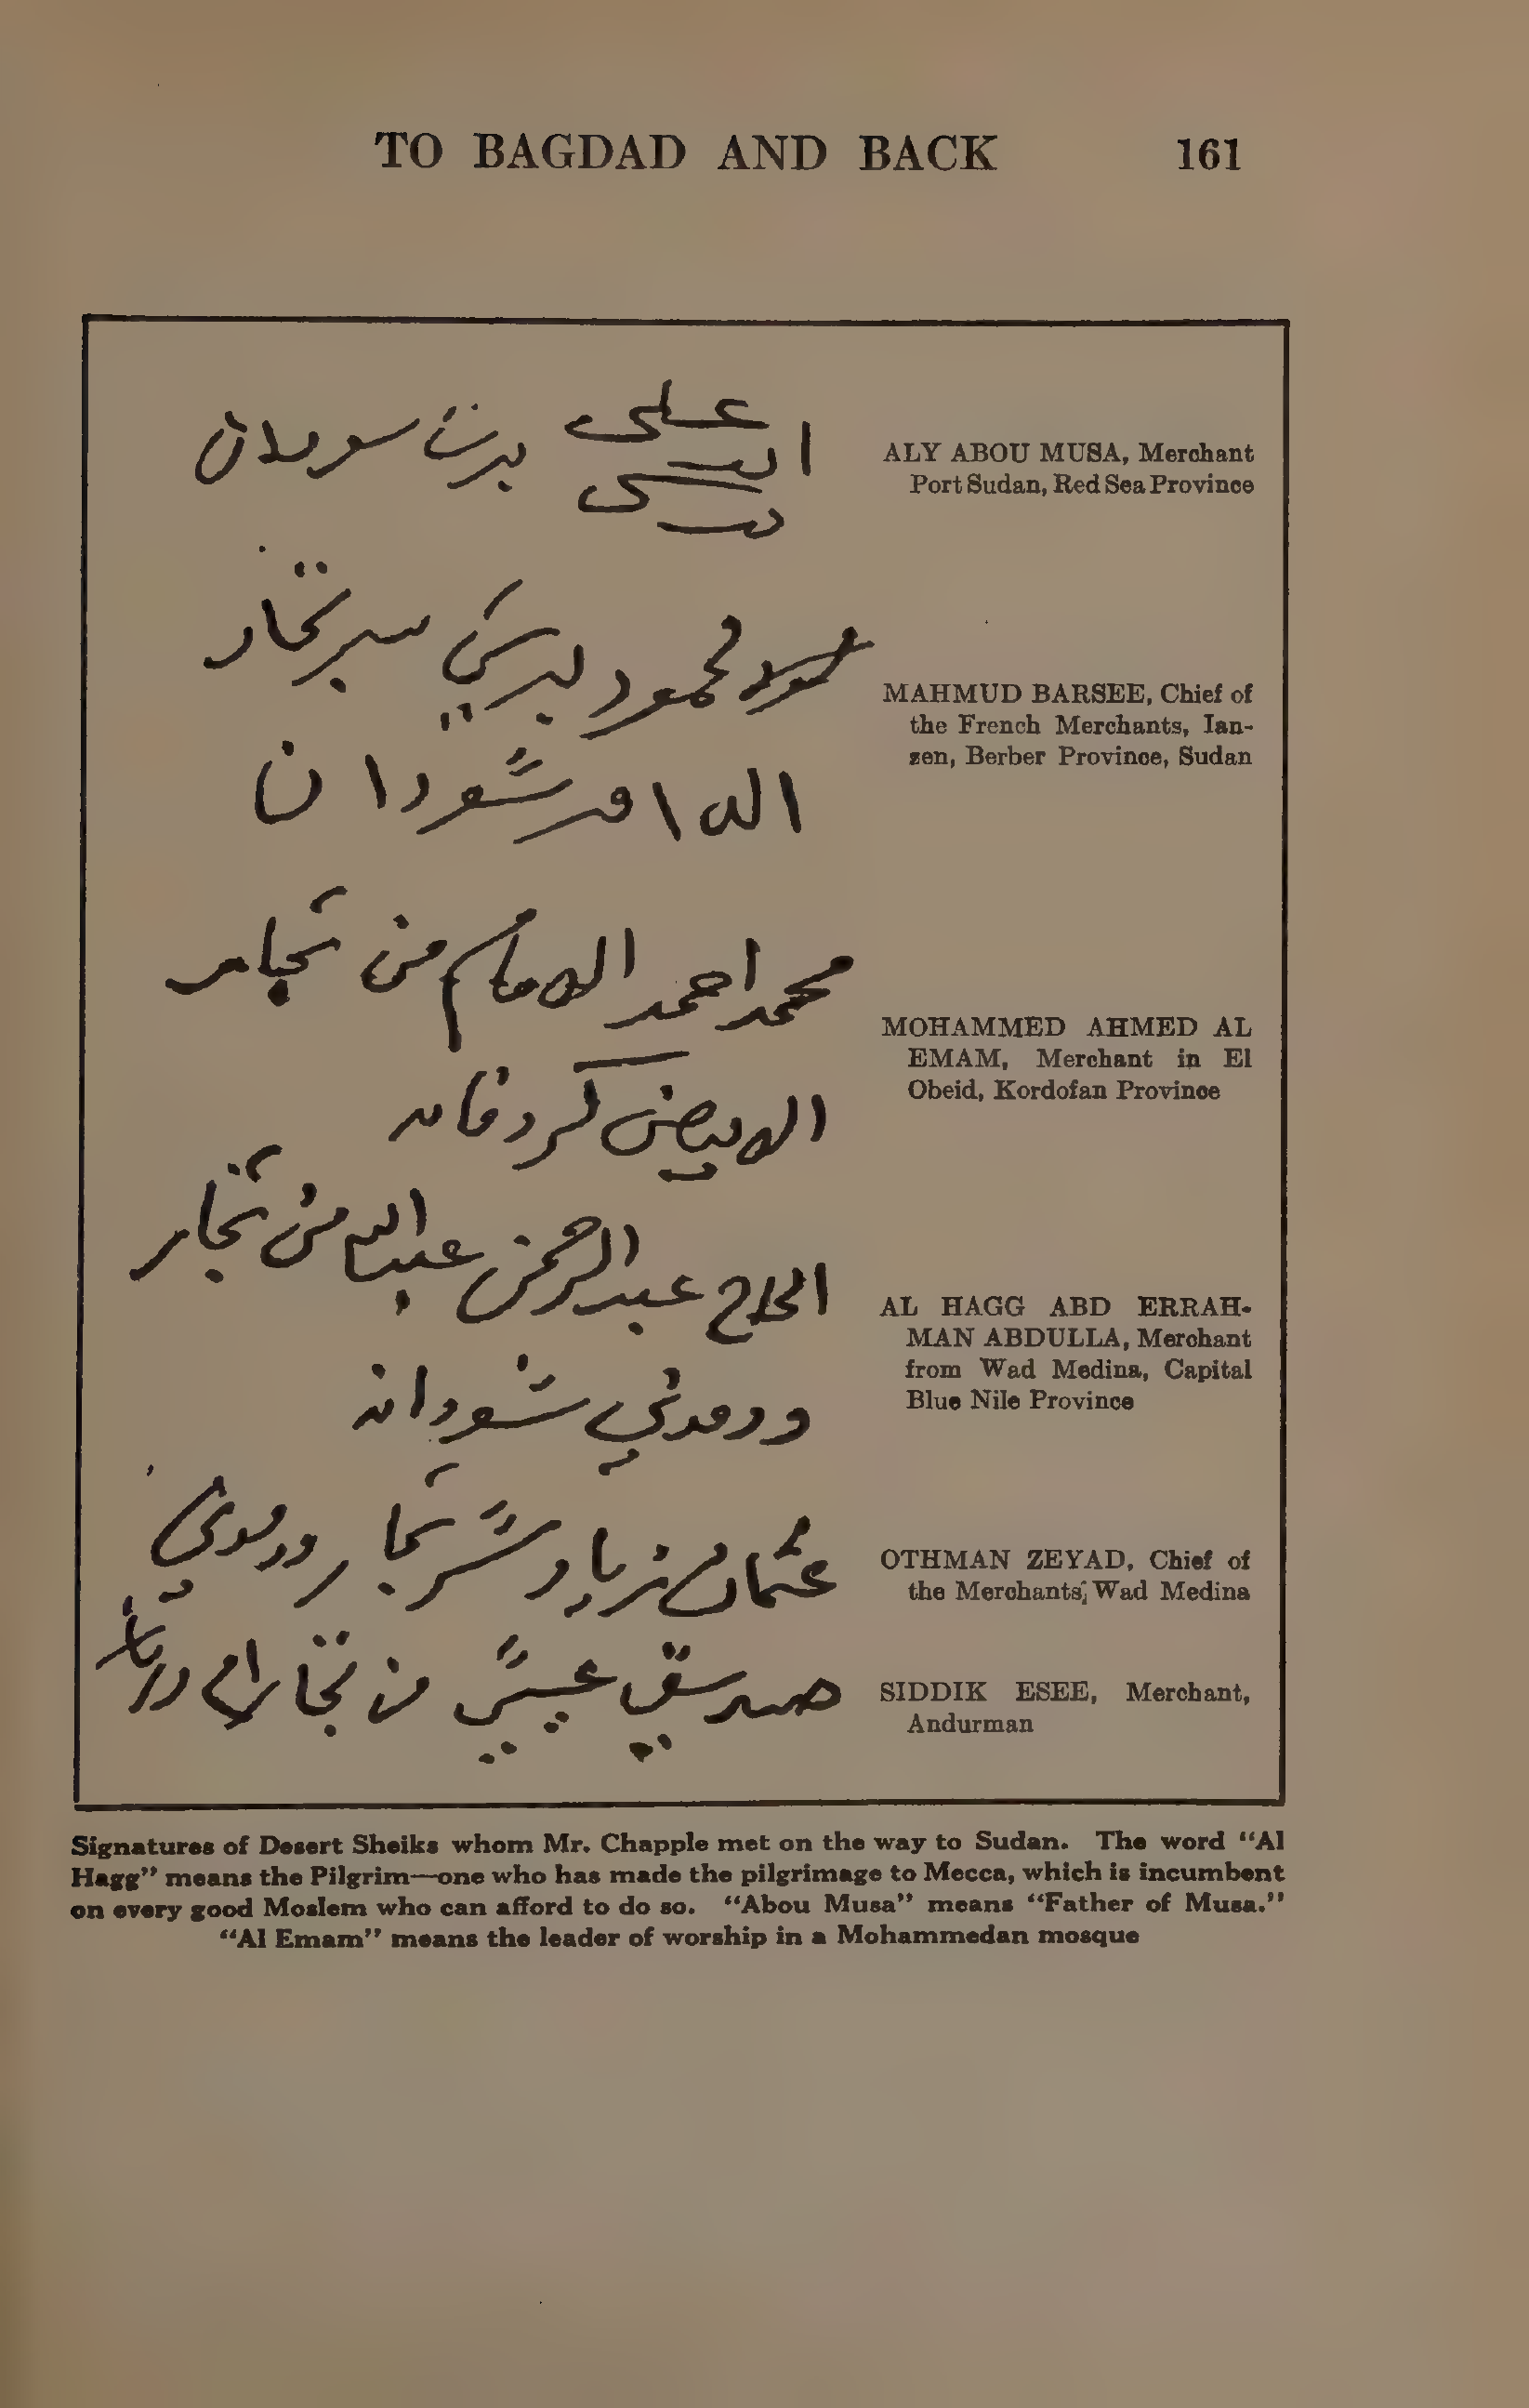 TO BAGDAD AND BACK 161
علي
برت سودان
ALY ABOU MUSA, Merchant
Port Sudan, Red Sea Province
محمود
MAHMUD BARSEE, Chief of
the French Merchants, Ian-
zen, Berber Province, Sudan
محمد احمد الامام من تجار
الابيض كردفان
MOHAMMED AHMED AL
EMAM, Merchant in El
Obeid, Kordofan Province
الحاج عبد الرحمن عبدالله من تجار
ودمدني سودان
AL HAGG ABD ERRAH-
MAN ABDULLA, Merchant
from Wad Medina, Capital
Blue Nile Province
عثمان زياد سر تجار ودمدني
OTHMAN ZEYAD, Chief of
the Merchants, Wad Medina
صديق عيسي من تجار
SIDDIK ESEE, Merchant,
Andurman
Signatures of Desert Sheiks whom Mr. Chapple met on the way to Sudan. The word "Al
Hagg" means the Pilgrim—one who has made the pilgrimage to Mecca, which is incumbent
on every good Moslem who can afford to do so. "Abou Musa" means "Father of Musa."
"Al Emam" means the leader of worship in a Mohammedan mosque